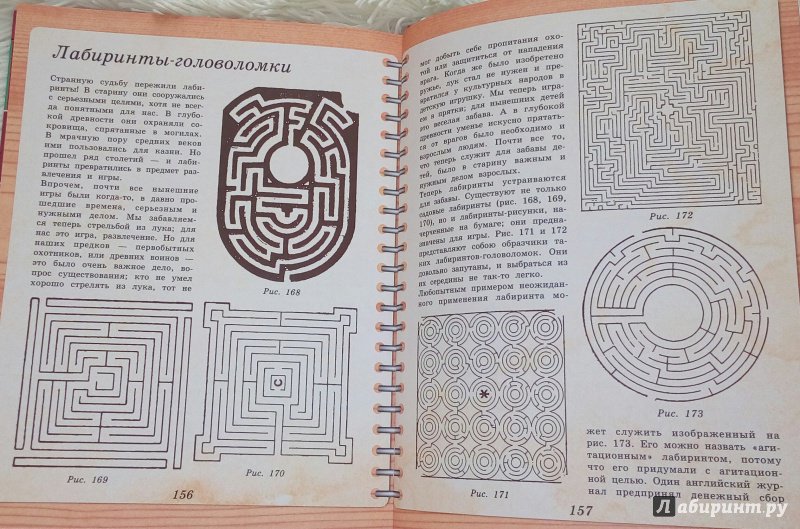 Лабиринты-головоломки
Странную судьбу пережили лаби-
ринты! В старину они сооружались
с серьезными целями, хотя не всег-
да понятными для нас. В глубо-
кой древности они охраняли со-
кровища, спрятанные в могилах.
В мрачную пору средних веков
ими пользовались для казни. Но
прошел ряд столетий — и лаби-
ринты превратились в предмет раз-
влечения и игры.
Впрочем, почти все нынешние
игры были когда-то, в давно про-
шедшие времена, серьезным и
нужными делом. Мы забавляем-
ся теперь стрельбой из лука; для
нас это игра, развлечение. Но для
наших предков — первобытных
охотников, или древних воинов —
это было очень важное дело, во-
прос существования; кто не умел
хорошо стрелять из лука, тот не
Рис. 168
Рис. 169
Рис. 170
156
мог добыть себе пропитания охо-
той или защититься от нападения
врага. Когда же было изобретено
ружье, лук стал не нужен и пре-
вратился у культурных народов в
детскую игрушку. Мы теперь игра-
ем в прятки; для нынешних детей
это веселая забава. А в глубокой
древности уменье искусно прятать-
ся от врагов было необходимо и
взрослым людям. Почти все то,
что теперь служит для забавы де-
тей, было в старину важным и
нужным делом взрослых.
Теперь лабиринты устраиваются
для забавы. Существуют не только
садовые лабиринты (рис. 168, 169,
170), но и лабиринты-рисунки, на-
черченные на бумаге; они предна-
значены для игры. Рис. 171 и 172
представляют собою образчики та-
ких лабиринтов-головоломок. Они
довольно запутаны, и выбраться из
их середины не так-то легко.
Любопытным примером неожидан-
ного применения лабиринта мо-
Рис. 171
Рис. 172
Рис. 173
жет служить изображенный на
рис. 173. Его можно назвать «аги-
тационным» лабиринтом, потому
что его придумали с агитацион-
ной целью. Один английский жур-
нал предпринял денежный сбор
157
Лабиринт.ру